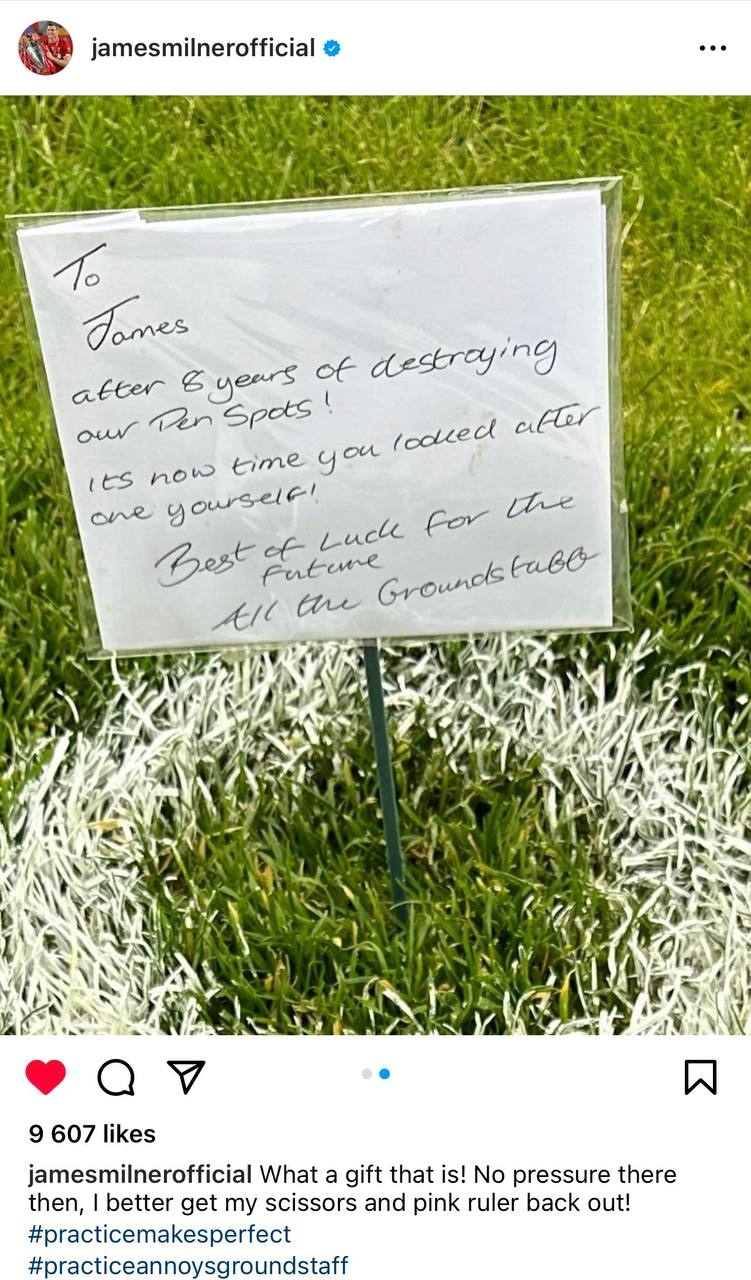 jamesmilnerofficial
To
James
after 8 years of destroying
our Pen Spots!
Its now time you looked after
one yourself!
Best of Luck for the
future
All the Groundstaff
9 607 likes
jamesmilnerofficial What a gift that is! No pressure there
then, I better get my scissors and pink ruler back out!
#practicemakesperfect
#practiceannoysgroundstaff